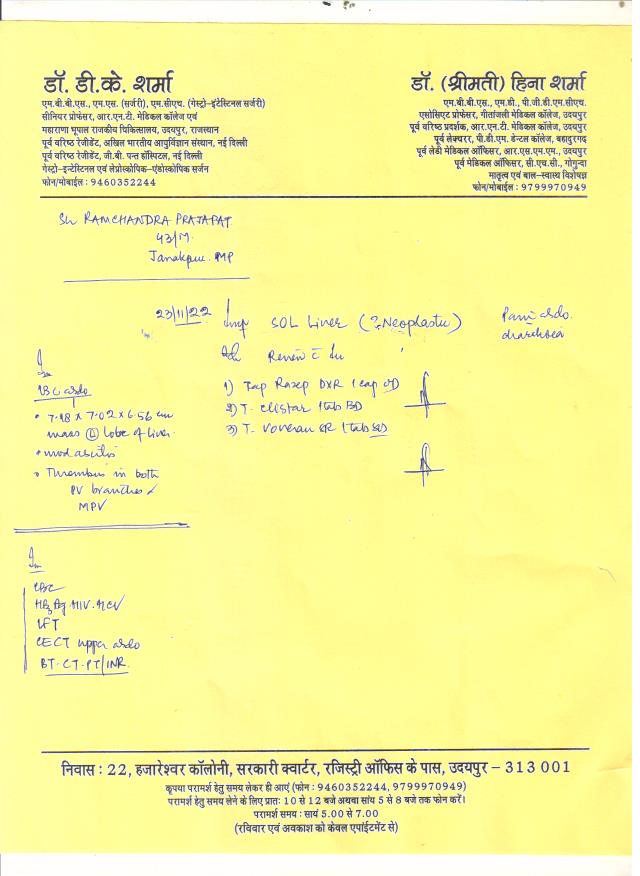 डॉ. डी.के. शर्मा
एम.बी.बी.एस., एम.एस. (सर्जरी), एम.सीएच. (गेस्ट्रो-इंटेस्टिनल सर्जरी)
सीनियर प्रोफेसर, आर.एन.टी. मेडिकल कॉलेज एवं
महाराणा भूपाल राजकीय चिकित्सालय, उदयपुर, राजस्थान
पूर्व वरिष्ठ रेजीडेंट, अखिल भारतीय आयुर्विज्ञान संस्थान, नई दिल्ली
पूर्व वरिष्ठ रेजीडेंट, जी.बी. पन्त हॉस्पिटल, नई दिल्ली
गेस्ट्रो-इन्टेस्टिनल एवं लेप्रोस्कोपिक-एंडोस्कोपिक सर्जन
फोन/मोबाईल : 9460352244
डॉ. (श्रीमती) हिना शर्मा
एम.बी.बी.एस., एम.डी., पी.जी.डी.एम.सीएच.
एसोसिएट प्रोफेसर, गीतांजली मेडिकल कॉलेज, उदयपुर
पूर्व वरिष्ठ प्रदर्शक, आर.एन.टी. मेडिकल कॉलेज, उदयपुर
पूर्व लेक्चरर, पी.डी.एम. डेन्टल कॉलेज, बहादुरगढ़
पूर्व लेडी मेडिकल ऑफिसर, आर.एस.एम.एम., उदयपुर
पूर्व मेडिकल ऑफिसर, सी.एच.सी., गोगुन्दा
मातृत्व एवं बाल-स्वास्थ्य विशेषज्ञ
फोन/मोबाईल : 9799970949
Sh RAMCHANDRA PRAJAPAT
43/M.
Janakpur. MP
23/11/22 Imp SOL Liver (? Neoplastic)
Pain abdo.
diarrhoea
Adv Renew c̄ Inv
1) Cap Rasep DXR 1 cap OD
2) T- Clistar 1 tab BD
3) T- Voveran SR 1 tab
abdo
• 7.18 x 7.02 x 6.56 cm
mass (L) lobe of liver.
• mod ascitis
• Thrombus in both
PV branches
MPV
Inv
CBC
HBsAg. HIV. HCV
LFT
CECT upper abdo
BT-CT-PT/INR.
निवास : 22, हजारेश्वर कॉलोनी, सरकारी क्वार्टर, रजिस्ट्री ऑफिस के पास, उदयपुर – 313 001
कृपया परामर्श हेतु समय लेकर ही आएं (फोन : 9460352244, 9799970949)
परामर्श हेतु समय लेने के लिए प्रातः 10 से 12 बजे अथवा सांय 5 से 8 बजे तक फोन करें।
परामर्श समय : सायं 5.00 से 7.00
(रविवार एवं अवकाश को केवल एपॉइंटमेंट से)